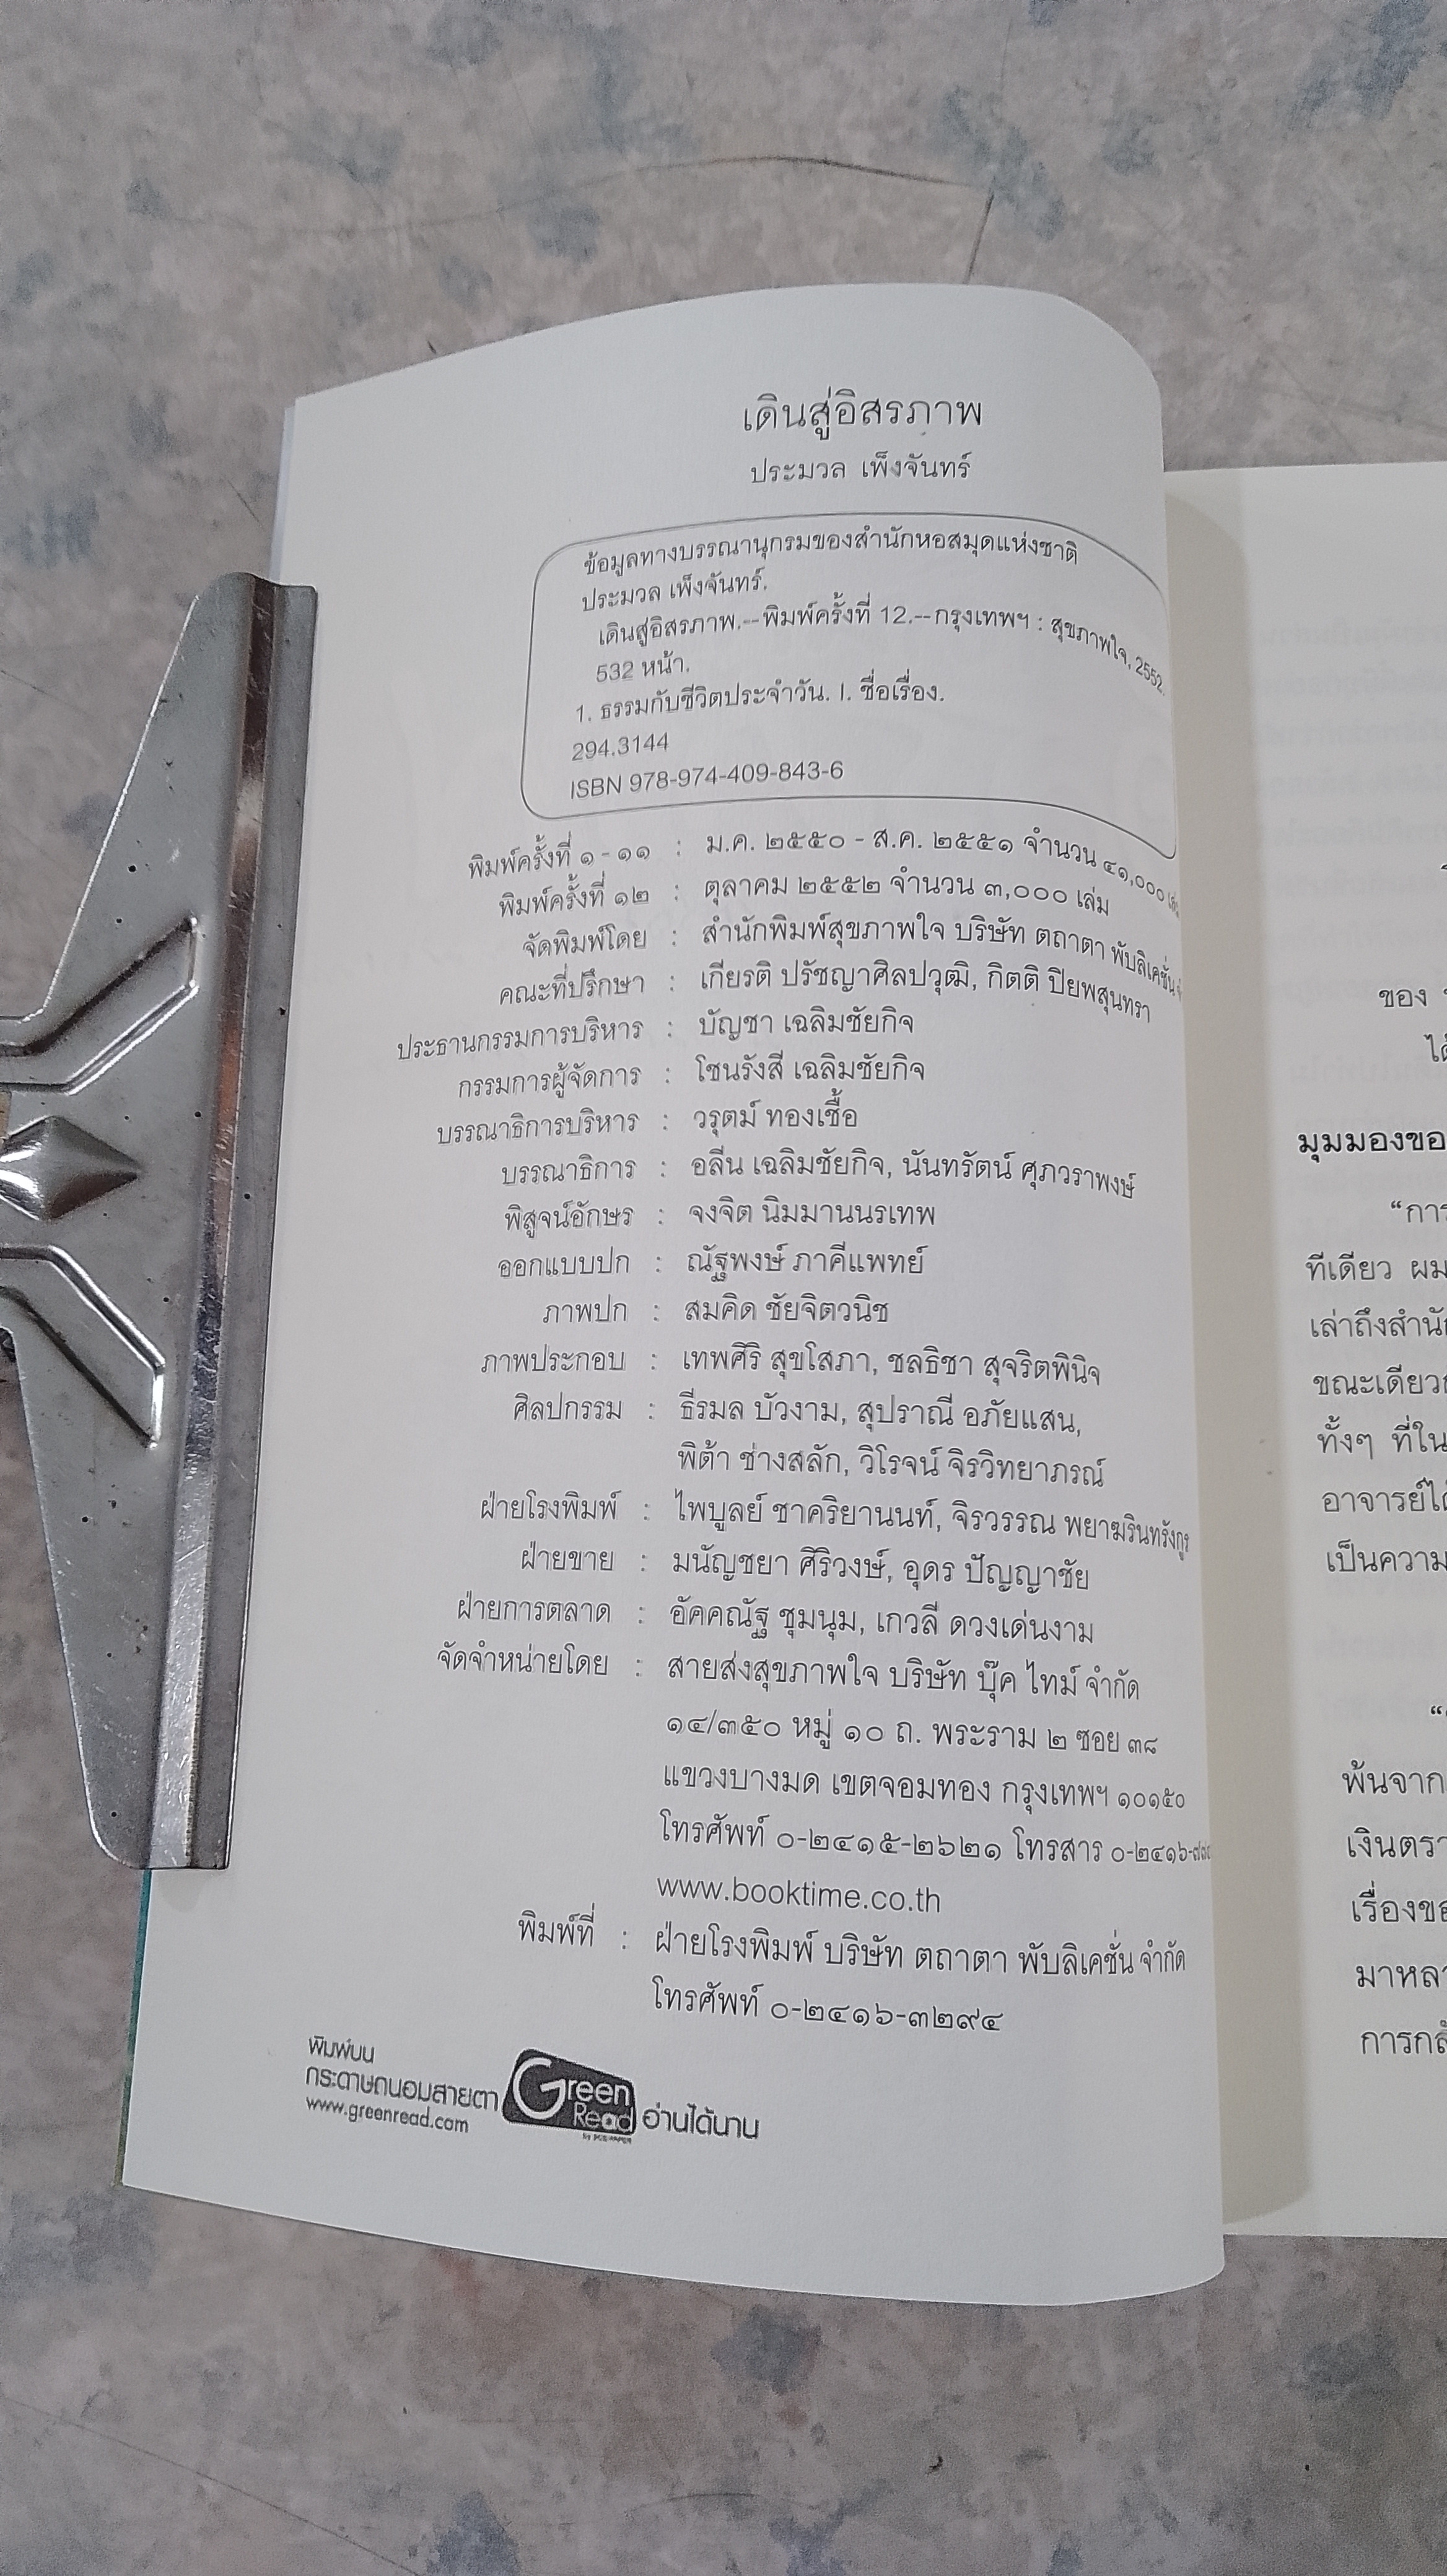 เดินสู่อิสรภาพ
ประมวล เพ็งจันทร์
ข้อมูลทางบรรณานุกรมของสำนักหอสมุดแห่งชาติ
ประมวล เพ็งจันทร์.
เดินสู่อิสรภาพ.--พิมพ์ครั้งที่ 12.--กรุงเทพฯ : สุขภาพใจ, 2552.
532 หน้า.
1. ธรรมกับชีวิตประจำวัน. I. ชื่อเรื่อง.
294.3144
ISBN 978-974-409-843-6
พิมพ์ครั้งที่ ๑ - ๑๑ : ม.ค. ๒๕๕๐ - ส.ค. ๒๕๕๑ จำนวน ๔๑,๐๐๐ เล่ม
พิมพ์ครั้งที่ ๑๒ : ตุลาคม ๒๕๕๒ จำนวน ๓,๐๐๐ เล่ม
จัดพิมพ์โดย : สำนักพิมพ์สุขภาพใจ บริษัท ตถาตา พับลิเคชั่น
คณะที่ปรึกษา : เกียรติ ปรัชญาศิลปวุฒิ, กิตติ ปิยพสุนทรา
ประธานกรรมการบริหาร : บัญชา เฉลิมชัยกิจ
กรรมการผู้จัดการ : โชนรังสี เฉลิมชัยกิจ
บรรณาธิการบริหาร : วรุตม์ ทองเชื้อ
บรรณาธิการ : อลีน เฉลิมชัยกิจ, นันทรัตน์ ศุภวราพงษ์
พิสูจน์อักษร : จงจิต นิมมานนรเทพ
ออกแบบปก : ณัฐพงษ์ ภาคีแพทย์
ภาพปก : สมคิด ชัยจิตวนิช
ภาพประกอบ : เทพศิริ สุขโสภา, ชลธิชา สุจริตพินิจ
ศิลปกรรม : ธีรมล บัวงาม, สุปราณี อภัยแสน,
พิต้า ช่างสลัก, วิโรจน์ จิรวิทยาภรณ์
ฝ่ายโรงพิมพ์ : ไพบูลย์ ชาคริยานนท์, จิรวรรณ พยาฆรินทรังกูร
ฝ่ายขาย : มนัญชยา ศิริวงษ์, อุดร ปัญญาชัย
ฝ่ายการตลาด : อัคคณัฐ ชุมนุม, เกวลี ดวงเด่นงาม
จัดจำหน่ายโดย : สายส่งสุขภาพใจ บริษัท บุ๊ค ไทม์ จำกัด
๑๔/๓๕๐ หมู่ ๑๐ ถ. พระราม ๒ ซอย ๓๘
แขวงบางมด เขตจอมทอง กรุงเทพฯ ๑๐๑๕๐
โทรศัพท์ ๐-๒๔๑๕-๒๖๒๑ โทรสาร
www.booktime.co.th
พิมพ์ที่ : ฝ่ายโรงพิมพ์ บริษัท ตถาตา พับลิเคชั่น จำกัด
โทรศัพท์ ๐-๒๔๑๖-๓๒๙๔
พิมพ์บน
กระดาษถนอมสายตา Green Read อ่านได้นาน
www.greenread.com
ของ
มุมมองขอ
“การ
ทีเดียว ผม
เล่าถึงสำนั
ขณะเดียว
ทั้งๆ ที่ใน
อาจารย์ได้
เป็นความ
พ้นจาก
เงินตรา
เรื่องขอ
มาหลา